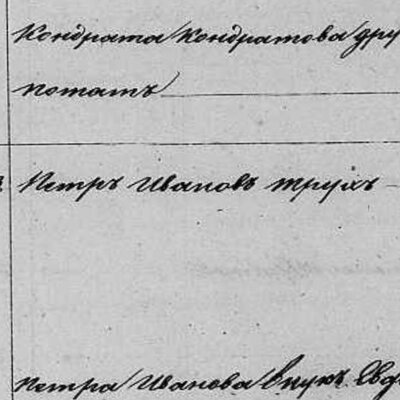 Кондрата Кондратова дру
потатъ
Петръ Ивановъ трухъ
Петра Иванова внукъ Евд